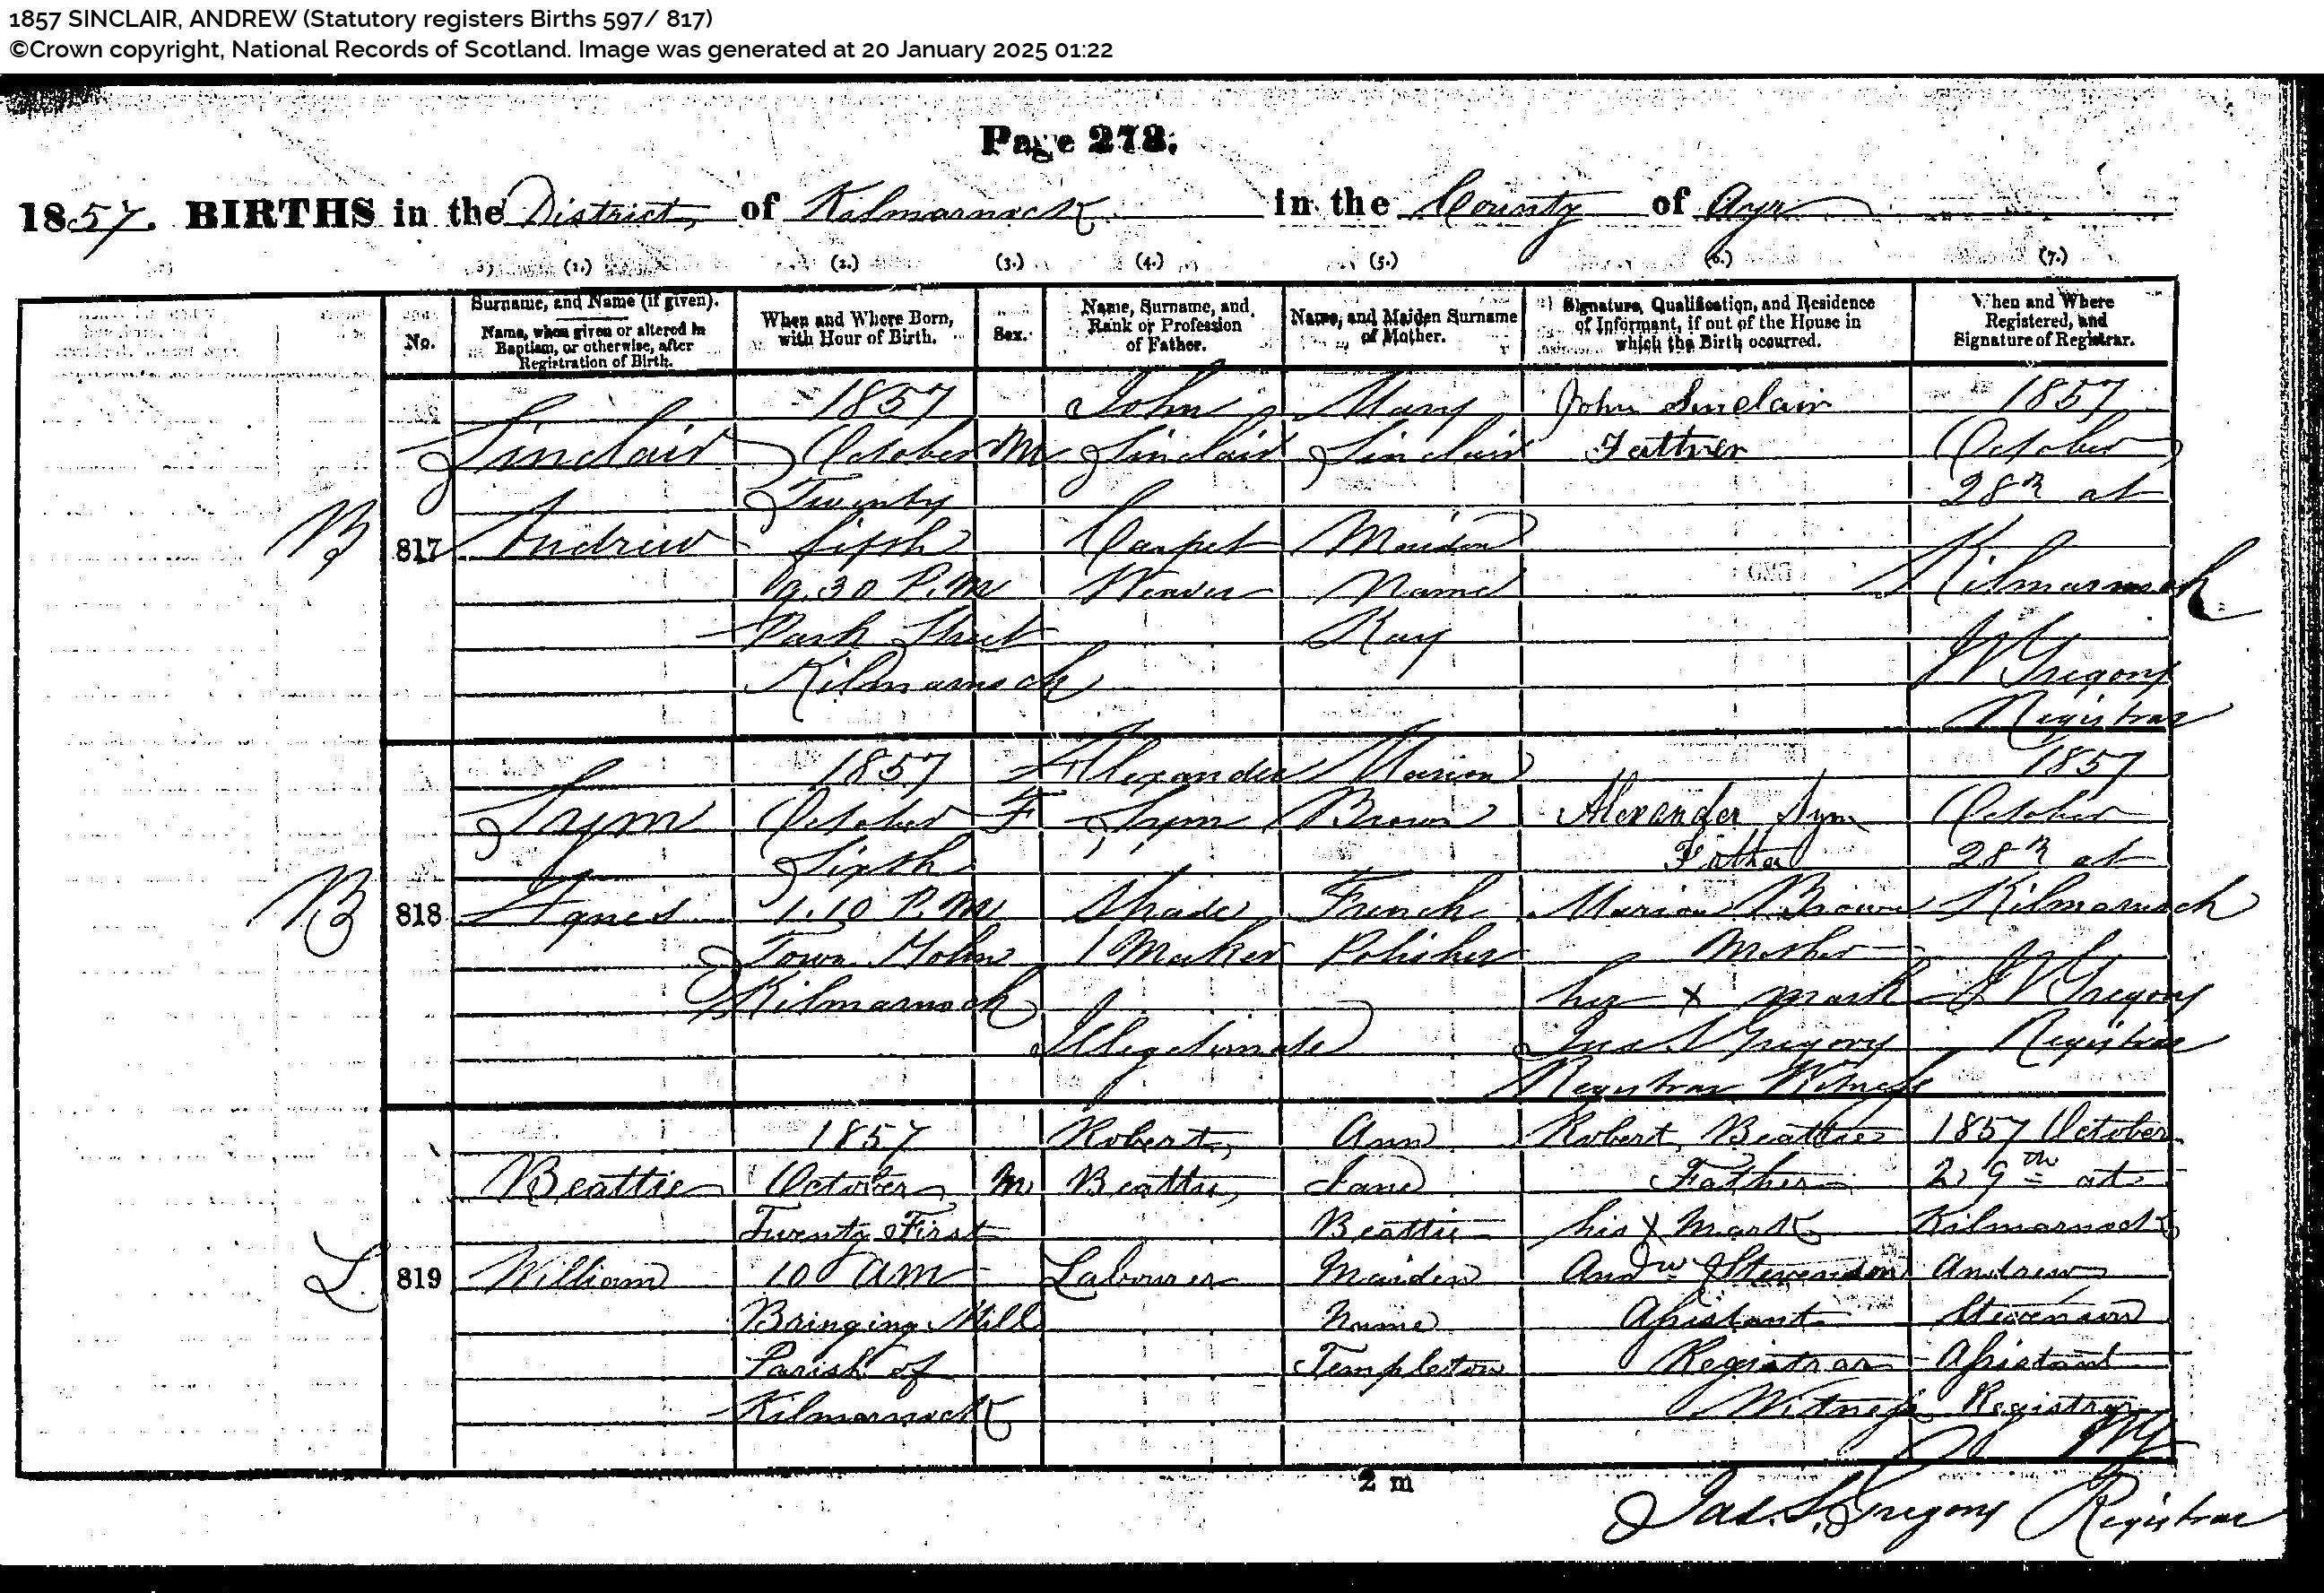 1857 SINCLAIR, ANDREW (Statutory registers Births 597/ 817)
©Crown copyright, National Records of Scotland. Image was generated at 20 January 2025 01:22
Page 273.
1857. BIRTHS in the District, of Kilmarnock in the County of Ayr
(1.) (2.) (3.) (4.) (5.) (6.) (7.)
No.
Surname, and Name (if given).
Name, when given or altered in
Baptism, or otherwise, after
Registration of Birth.
When and Where Born,
with Hour of Birth.
Sex.
Name, Surname, and
Rank or Profession
of Father.
Name, and Maiden Surname
of Mother.
Signature, Qualification, and Residence
of Informant, if out of the House in
which the Birth occurred.
When and Where
Registered, and
Signature of Registrar.
B
817
Sinclair
Andrew
1857
October
Twenty
fifth
9.30 P.M
Park Street
Kilmarnock
M
John
Sinclair
Carpet
Weaver
Mary
Sinclair
Maiden
Name
Kay
John Sinclair
Father
1857
October
28th at
Kilmarnock
Gregory
Registrar
B
818
Sym
Agnes
1857
October
Sixth
1.10 P.M
Town Holm
Kilmarnock
F
Alexander
Sym
Shade
Maker
Illegitimate
Marion
Brown
French
Polisher
Alexander Sym
Father
Marion Brown
Mother
her x mark
Jas. S Gregory
Registrar Witness
1857
October
28th at
Kilmarnock
Gregory
Registrar
L
819
Beattie
William
1857
October
Twenty First
10 am
Bringing Mill
Parish of
Kilmarnock
M
Robert,
Beattie,
Labourer
Ann
Jane
Beattie
Maiden
Name
Templeton
Robert Beattie
Father
his x Mark
Andw Stevenson
Assistant
Registrar
Witness
1857 October
29th at
Kilmarnock
Andrew
Stevenson
Assistant
Registrar
2 m
Jas. S. Gregory Registrar